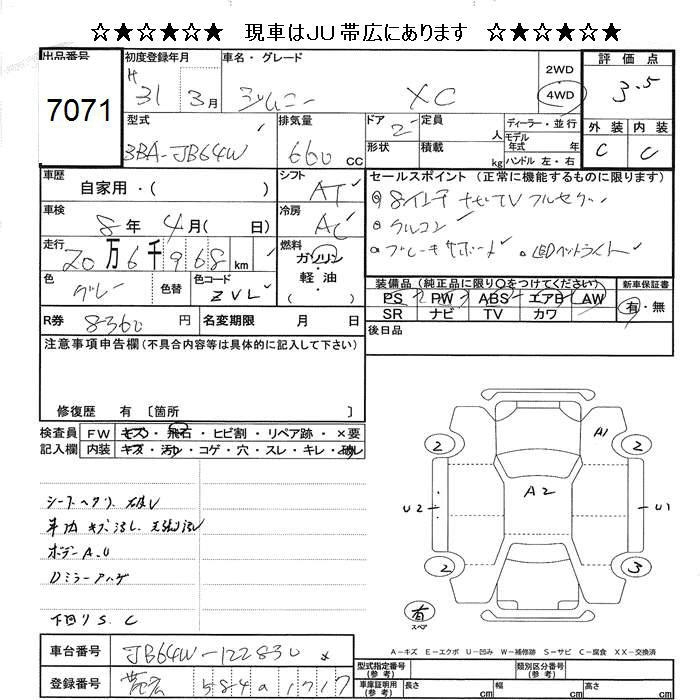 ☆★☆★☆★ 現車はJU帯広にあります ☆★☆★☆★
出品番号 初度登録年月 車名・グレード 2WD 評価点
7071 H 31 3月 ジムニー XC 4WD 3.5
型式 排気量 ドア 定員 人 ディーラー・並行 外装 内装
3BA-JB64W 660 CC 2 形状 積載 kg モデル年式 年式 ハンドル 左・右 C C
車歴 シフト セールスポイント (正常に機能するものに限ります)
自家用・( ) AT 8インチナビTV フルセグ
車検 冷房 クルコン
8年 4月( 日) AC ブレーキサポート LEDヘッドライト
走行 燃料
20万6千968 km ガソリン
軽・油
( )
色 色替 色コード 装備品 (純正品に限り○をつけてください) 新車保証書
グレー ZVL PS PW ABS エアB AW 有・無
SR ナビ TV カワ
R券 8360円 名変期限 月 日 後日品
注意事項申告欄(不具合内容等は具体的に記入して下さい)
修復歴 有 〔箇所 〕
検査員 FW キズ・飛石・ヒビ割・リペア跡・×要
記入欄 内装 キズ・汚れ・コゲ・穴・スレ・キレ・破レ
2 A1 2
U2 A2 U1
2 3
シートヘタリ 破レ
車内 キズ 汚レ 天張リ汚レ
ボデーA.U
Dミラーアハゲ
下回りS.C
有
スペア
A-キズ E-エクボ U-凹み W-補修跡 S-サビ C-腐食 XX-交換済
車台番号 JB64W-122830 型式指定番号(参考) 類別区分番号(参考)
登録番号 帯広 584 a 1717 車庫証明用(参考) 長さ cm 幅 cm 高さ cm